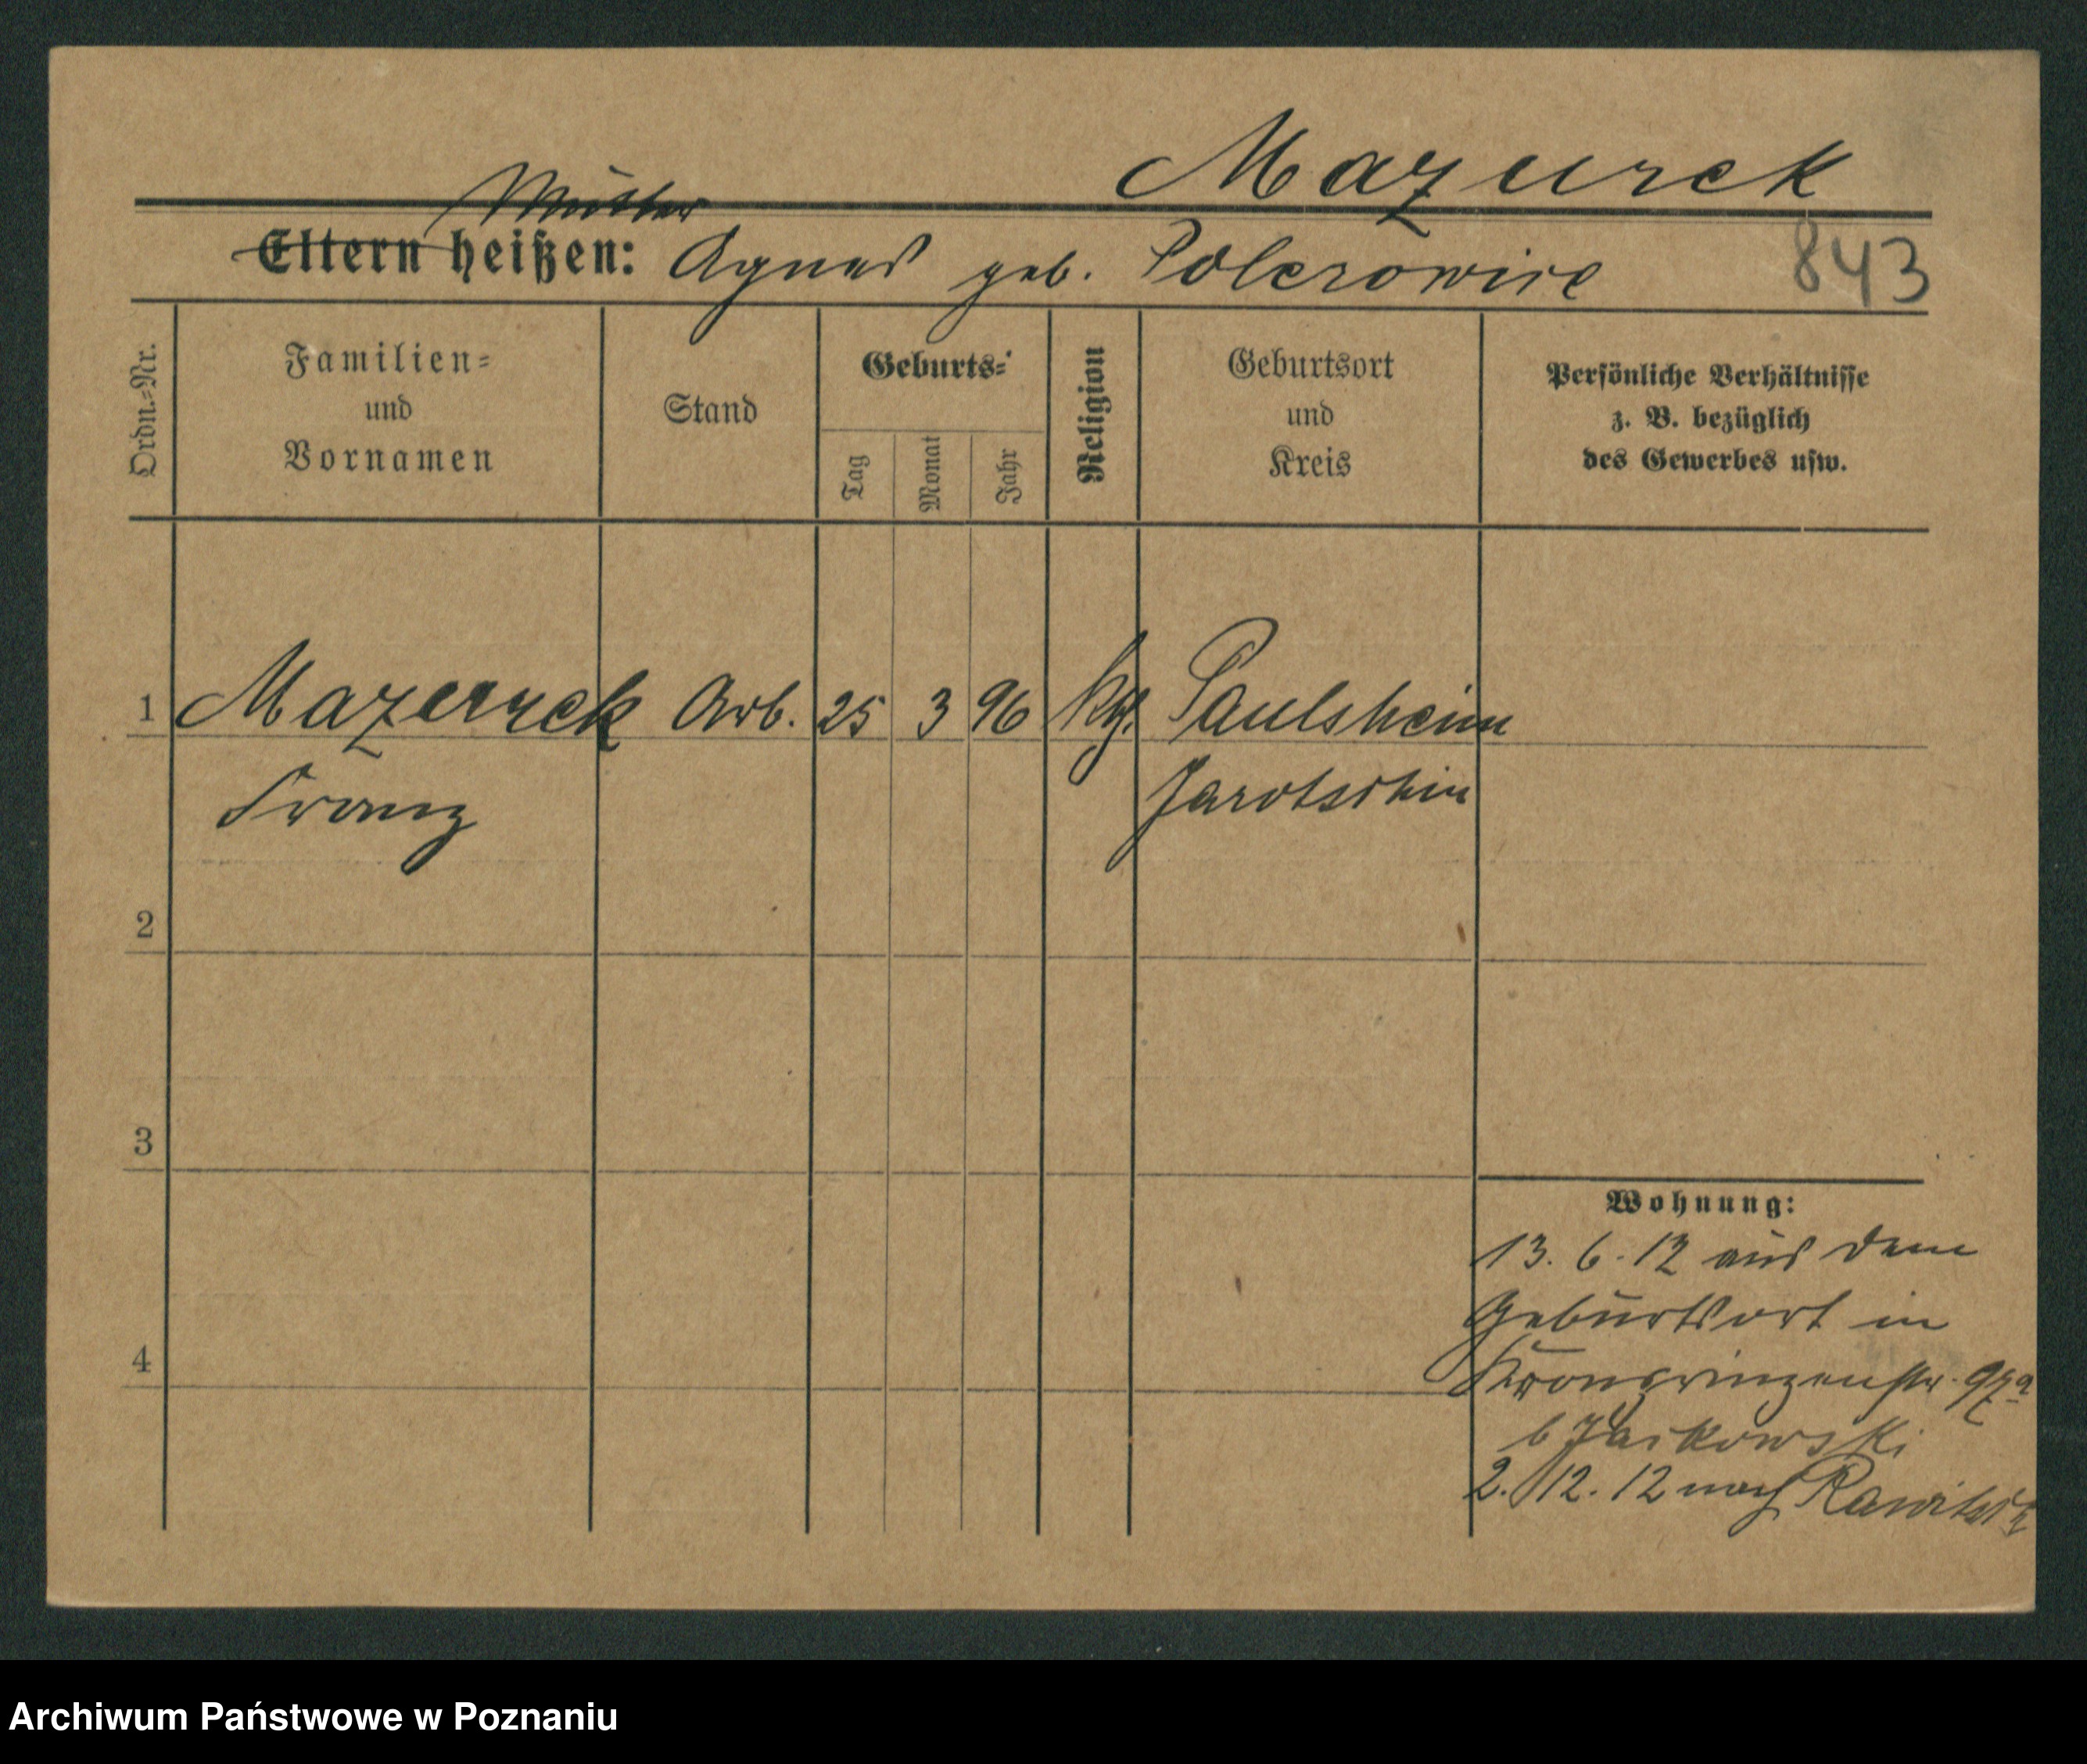 Mazurek
Mutter
Eltern heißen: Agnes geb.
843
Ordn.-Nr.
Familien-
und
Vornamen
Stand
Geburts-
Tag
Monat
Jahr
Religion
Geburtsort
und
Kreis
Persönliche Verhältnisse
z. B. bezüglich
des Gewerbes usw.
1 Mazurek Arb. 25 3 96 Paulsheim
Franz Jarotschin
2
3
4
Wohnung:
13. 6. 12 aus dem
Geburtsort in
Kronprinzenstr.
b
2. 12. 12 nach Rawitsch
Archiwum Państwowe w Poznaniu